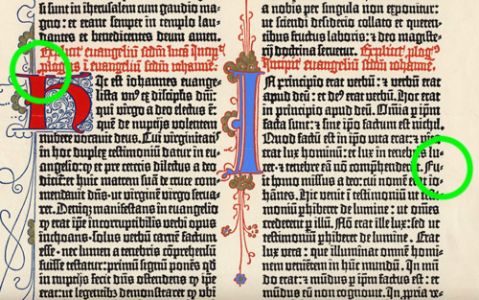 sunt in iherusalem cum gaudio ma-
gno: et erant semper in templo lau-
dantes et benedicentes deum amen.
Explicit euangeliū scdm lucā Incipit
prologus ī euangeliū scdm iohannē.
Hic est iohannes euange-
lista unꝰ ex discipulis dn̄i:
qui virgo a deo electus ē:
quē de nuptijs volentem
nubere vocauit deus. Cui virginitatis
in hoc duplex testimoniū datur in eu-
angelio: ꝙ et pre ceteris dilectus a deo
dicit᷑: et huic matrem suā de cruce com-
mendauit dn̄s: ut virginē virgo serua-
ret. Deniq̄ manifestans in euangelio
ꝙ erat ipse incorruptibilis verbi opus
inchoans: solus verbū carnē factum
esse. nec lumen a tenebris cōprehensū
fuisse testatur: primū signū ponēs qd̄
in nuptijs fecit dn̄s ostendens ꝙ ipse
erat: ut legentibꝰ demonstraret ꝙ ubi
a nobis per singula non exponitur:
ut sciendi desiderio collato et queren-
tibus fructus laboris: et deo magiste-
rij doctrina seruetur. Explicit plogꝰ
Incipit euangeliū scdm iohannē.
In principio erat verbū: et verbū erat
apud deū: et deꝰ erat verbū. Hoc erat
in principio apud deū. Omīa p ipm̄
facta sunt: et sine ipo factum est nichil.
Quod factū est in ipo vita erat: et vita
erat lux hominū: et lux in tenebris lu-
cet: et tenebre eā nō comprehenderūt. Fu-
it homo missus a deo: cui nomē erat io-
hānes. Hic venit ī testimoniū ut tes-
timoniū phiberet de lumine: ut omēs
crederent p illū. Nō erat ille lux: sed ut
testimoniū phiberet de lumine. Erat
lux vera: que illuminat omnē homi-
nem venientē in hūc mundū. In mū-
do erat: et mundus p ipm̄ factus est: et
mūdus eū non cognouit. In ppria